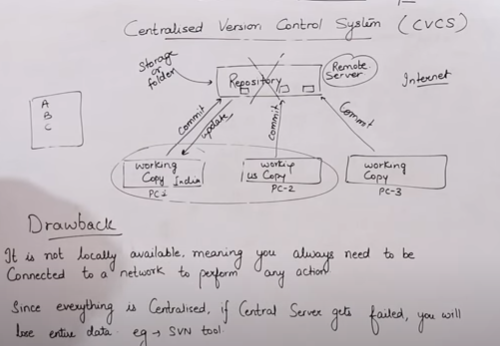 Centralised Version Control System (CVCS)
Storage
or
folder
Repository
Remote
Server
Internet
A
B
C
commit
update
commit
Commit
working
Copy India
PC1
US Copy
PC-2
working
Copy
PC-3
Drawback
It is not locally available, meaning you always need to be
Connected to a network to perform any action
Since everything is Centralised, if Central Server gets failed, you will
lose entire data. eg → SVN tool.